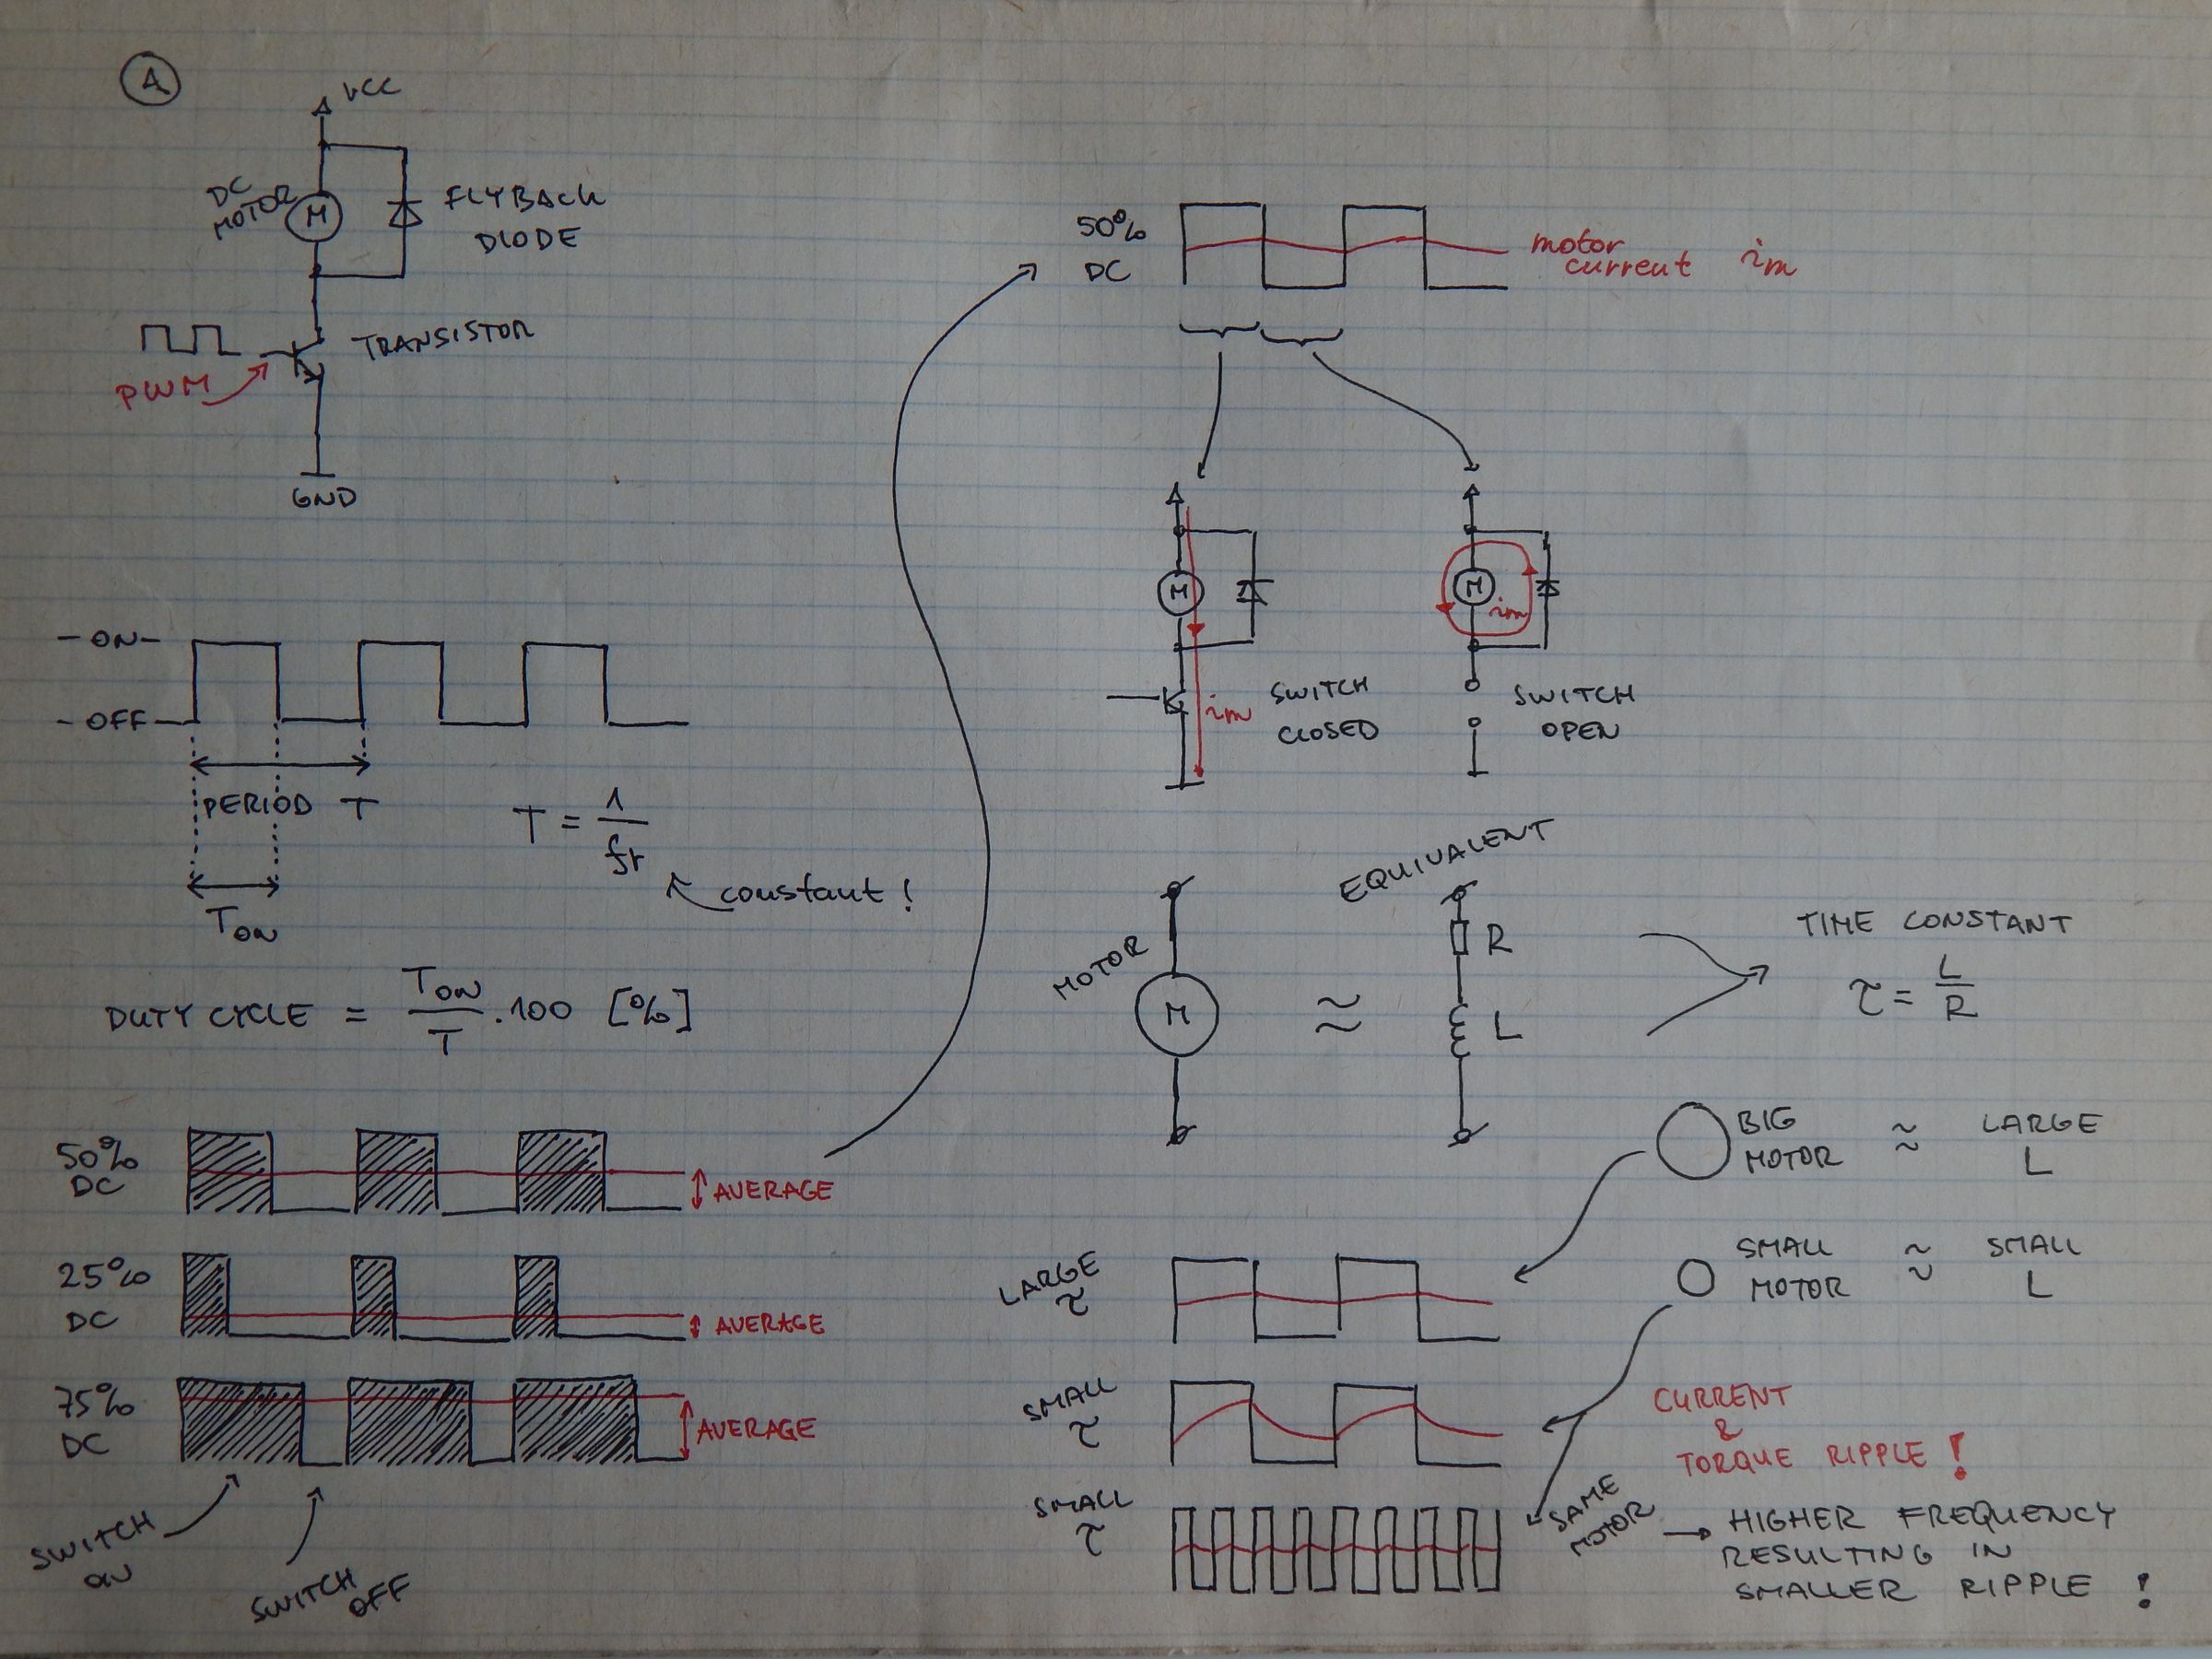 A
VCC
DC
MOTOR
M
FLYBACK
DIODE
TRANSISTOR
PWM
GND
- ON -
- OFF -
PERIOD T
T = 1/fr
constant!
TON
DUTY CYCLE = TON/T . 100 [%]
50%
DC
AVERAGE
25%
DC
AVERAGE
75%
DC
AVERAGE
SWITCH
ON
SWITCH
OFF
50%
DC
motor
current im
M
im
SWITCH
CLOSED
M
im
SWITCH
OPEN
MOTOR
M
≈
EQUIVALENT
R
L
TIME CONSTANT
τ = L/R
BIG
MOTOR
≈
LARGE
L
SMALL
MOTOR
≈
SMALL
L
LARGE
τ
SMALL
τ
CURRENT
&
TORQUE RIPPLE!
SMALL
τ
SAME
MOTOR
→ HIGHER FREQUENCY
RESULTING IN
SMALLER RIPPLE !